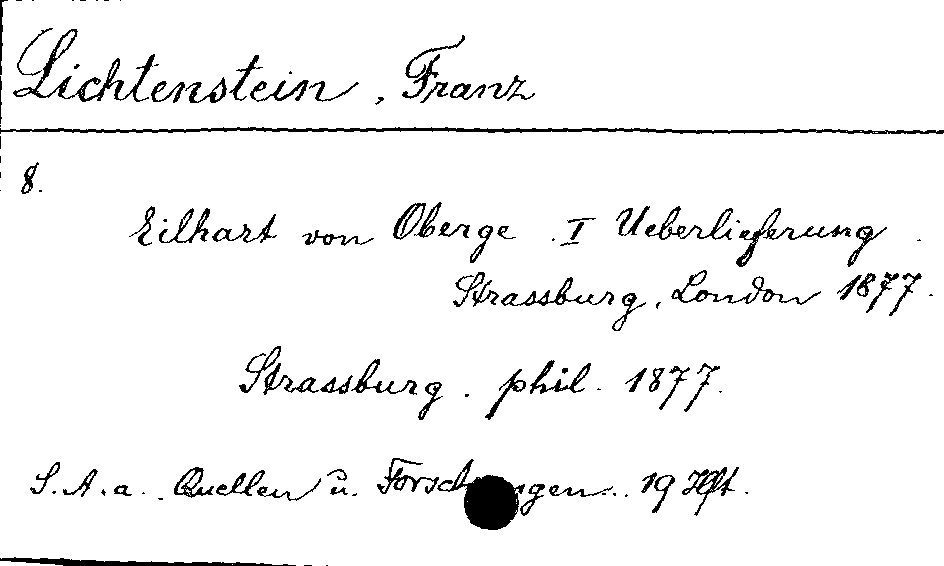 Lichtenstein, Franz
8.
Eilhart von Oberge. I Ueberlieferung.
Strassburg, London 1877.
Strassburg. phil. 1877.
S. A. a. Quellen u. Forschungen. 19 Hft.